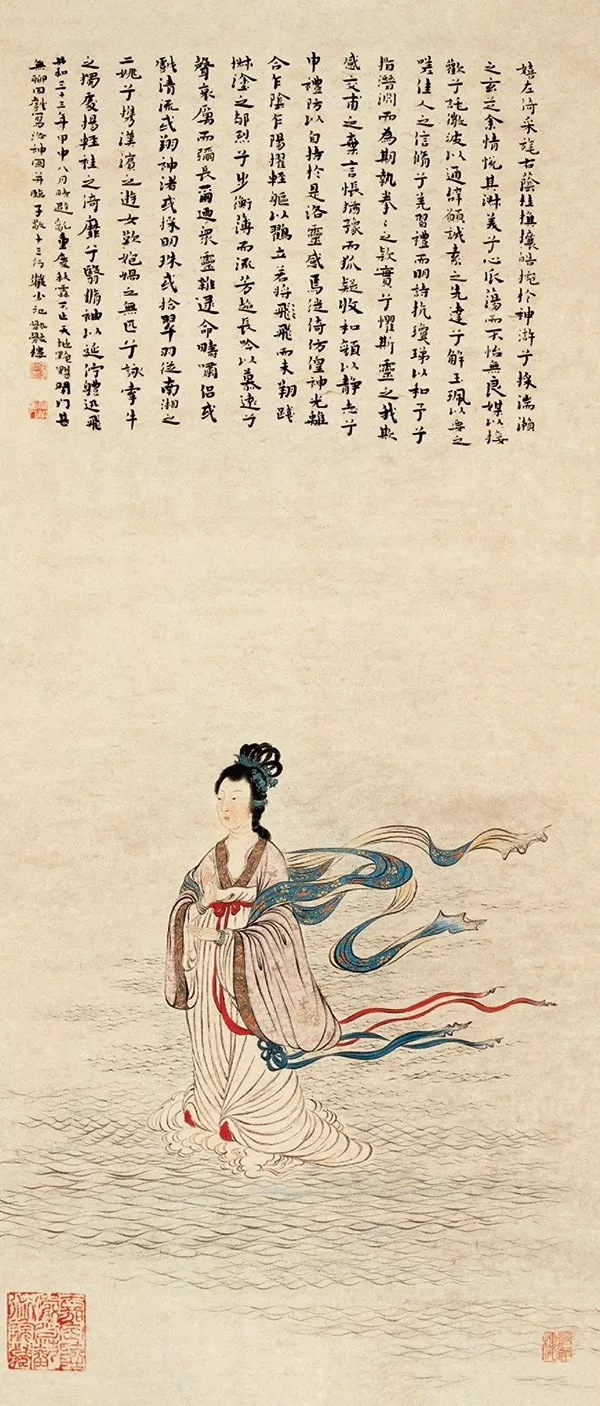 嬉左倚采旄右蔭桂旗攘皓捥於神滸兮採湍瀨
之玄芝余情悅其淋美兮心振蕩而不怡無良媒以接
歡兮託微波以通辭願誠素之先達兮解玉珮以要之
嗟佳人之信脩兮羌習禮而明詩抗瓊珶以和予兮
指潛淵而為期執拳〻之款實兮懼斯靈之我欺
感交甫之棄言悵猶豫而狐疑收和顏以靜志兮
申禮防以自持於是洛靈感焉徙倚仿偟神光離
合乍陰乍陽擢輕軀以鶴立若將飛飛而未翔踐
椒塗之郁烈兮步衡薄而流芳超長吟以慕遠兮
聲哀厲而彌長爾迺眾靈雜遝命疇嘯侶或
戲清流或翔神渚或採明珠或拾翠羽從南湘之
二姚兮攜漢濱之遊女歎匏媧之無匹兮詠牽牛
之獨處揚輕袿之倚靡兮翳脩袖以延佇體迅飛
共和三十三年甲申八月時避亂重慶秋霖不止天地黯黮明门甚
無聊因戲寫洛神圖并臨子敬十三行